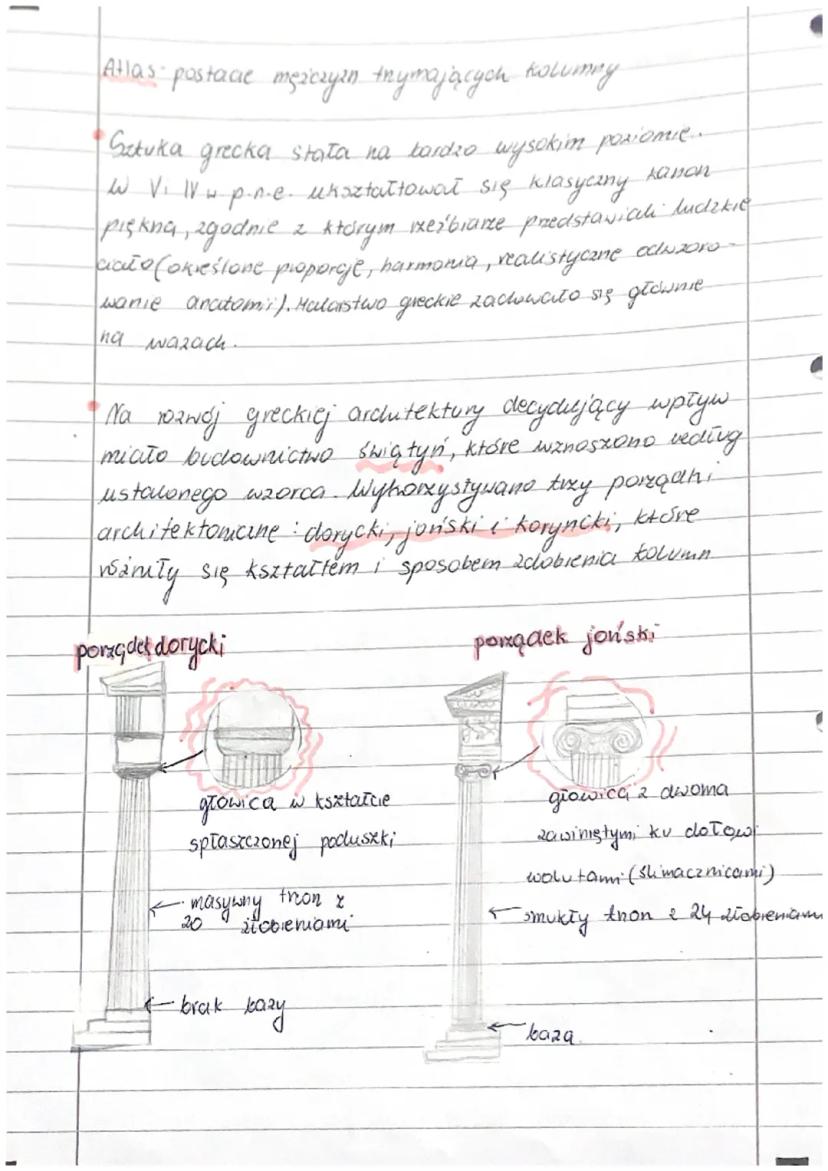 Atlas - postacie mężczyzn trzymających kolumny
Sztuka grecka stała na bardzo wysokim poziomie.
W V i IV w p.n.e. ukształtował się klasyczny kanon
piękna, zgodnie z którym rzeźbiarze przedstawiali ludzkie
ciało (określone proporcje, harmonia, realistyczne odwzoro-
wanie anatomii). Malarstwo greckie zachowało się głównie
na wazach.
Na rozwój greckiej architektury decydujący wpływ
miało budownictwo świątyń, które wznoszono według
ustalonego wzorca. Wykorzystywano trzy porządki
architektoniczne: dorycki, joński i koryncki, które
różniły się kształtem i sposobem zdobienia kolumn
porządek dorycki porządek joński
głowica w kształcie
spłaszczonej poduszki
masywny trzon z
20 żłobieniami
brak bazy
głowica z dwoma
zawiniętymi ku dołowi
wolutami (ślimacznicami)
smukły trzon z 24 żłobieniami
baza